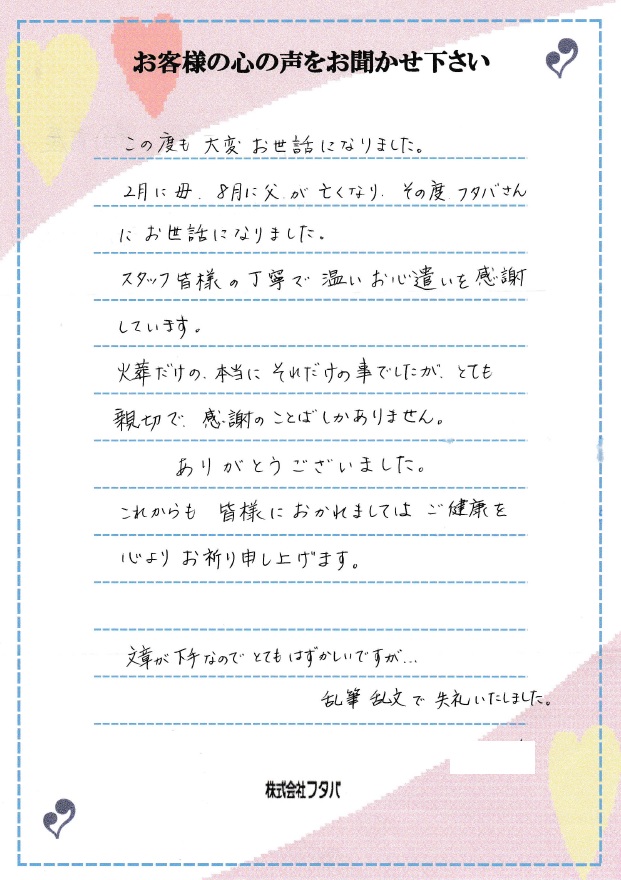 お客様の心の声をお聞かせ下さい
この度も 大変 お世話になりました。
2月に母、8月に父が 亡くなり、その度 フタバさん
に お世話になりました。
スタッフ皆様の丁寧で 温い お心遣いを感謝
しています。
火葬だけの、本当に それだけの事でしたが、とても
親切で、感謝のことばしかありません。
ありがとうございました。
これからも 皆様に おかれましては ご健康を
心より お祈り申し上げます。
文章が下手なので とてもはずかしいですが…
乱筆 乱文で 失礼いたしました。
株式会社フタバ